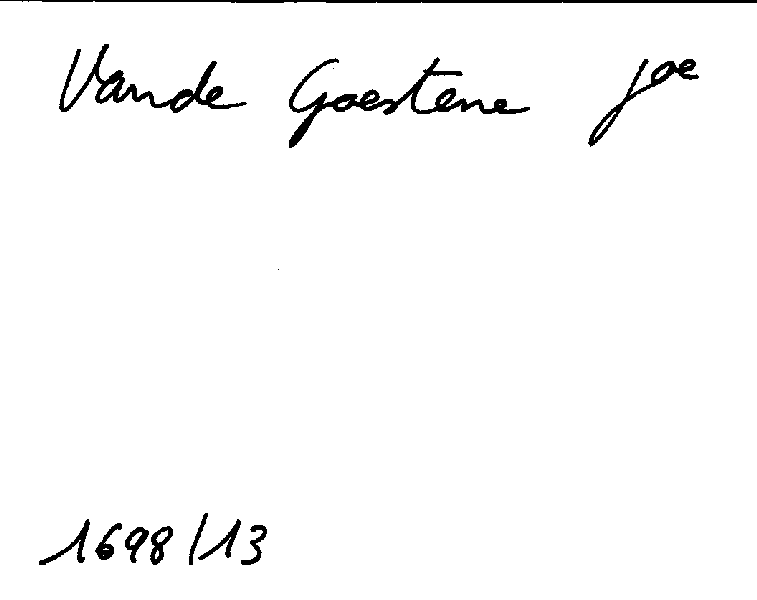 Vande Goestene Joe
1698/13